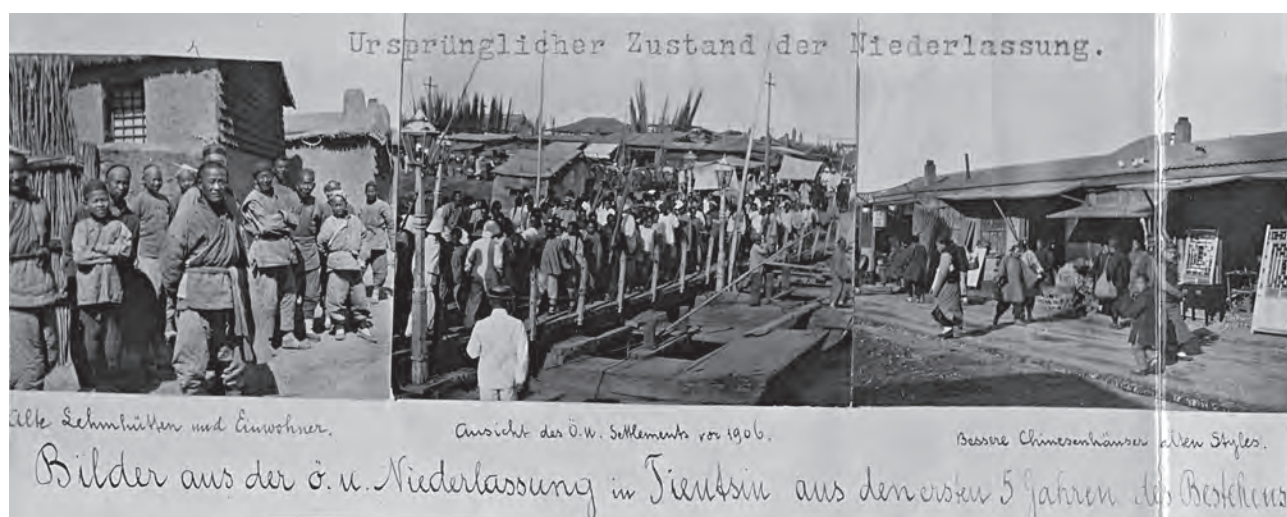 Ursprünglicher Zustand der Niederlassung.
Alte Lehmhütten und Einwohner.
Ansicht des Ö.U. Settlements vor 1906.
Bessere Chinesenhäuser alten Styles.
Bilder aus der ö. u. Niederlassung in Tientsin aus den ersten 5 Jahren des Bestehens